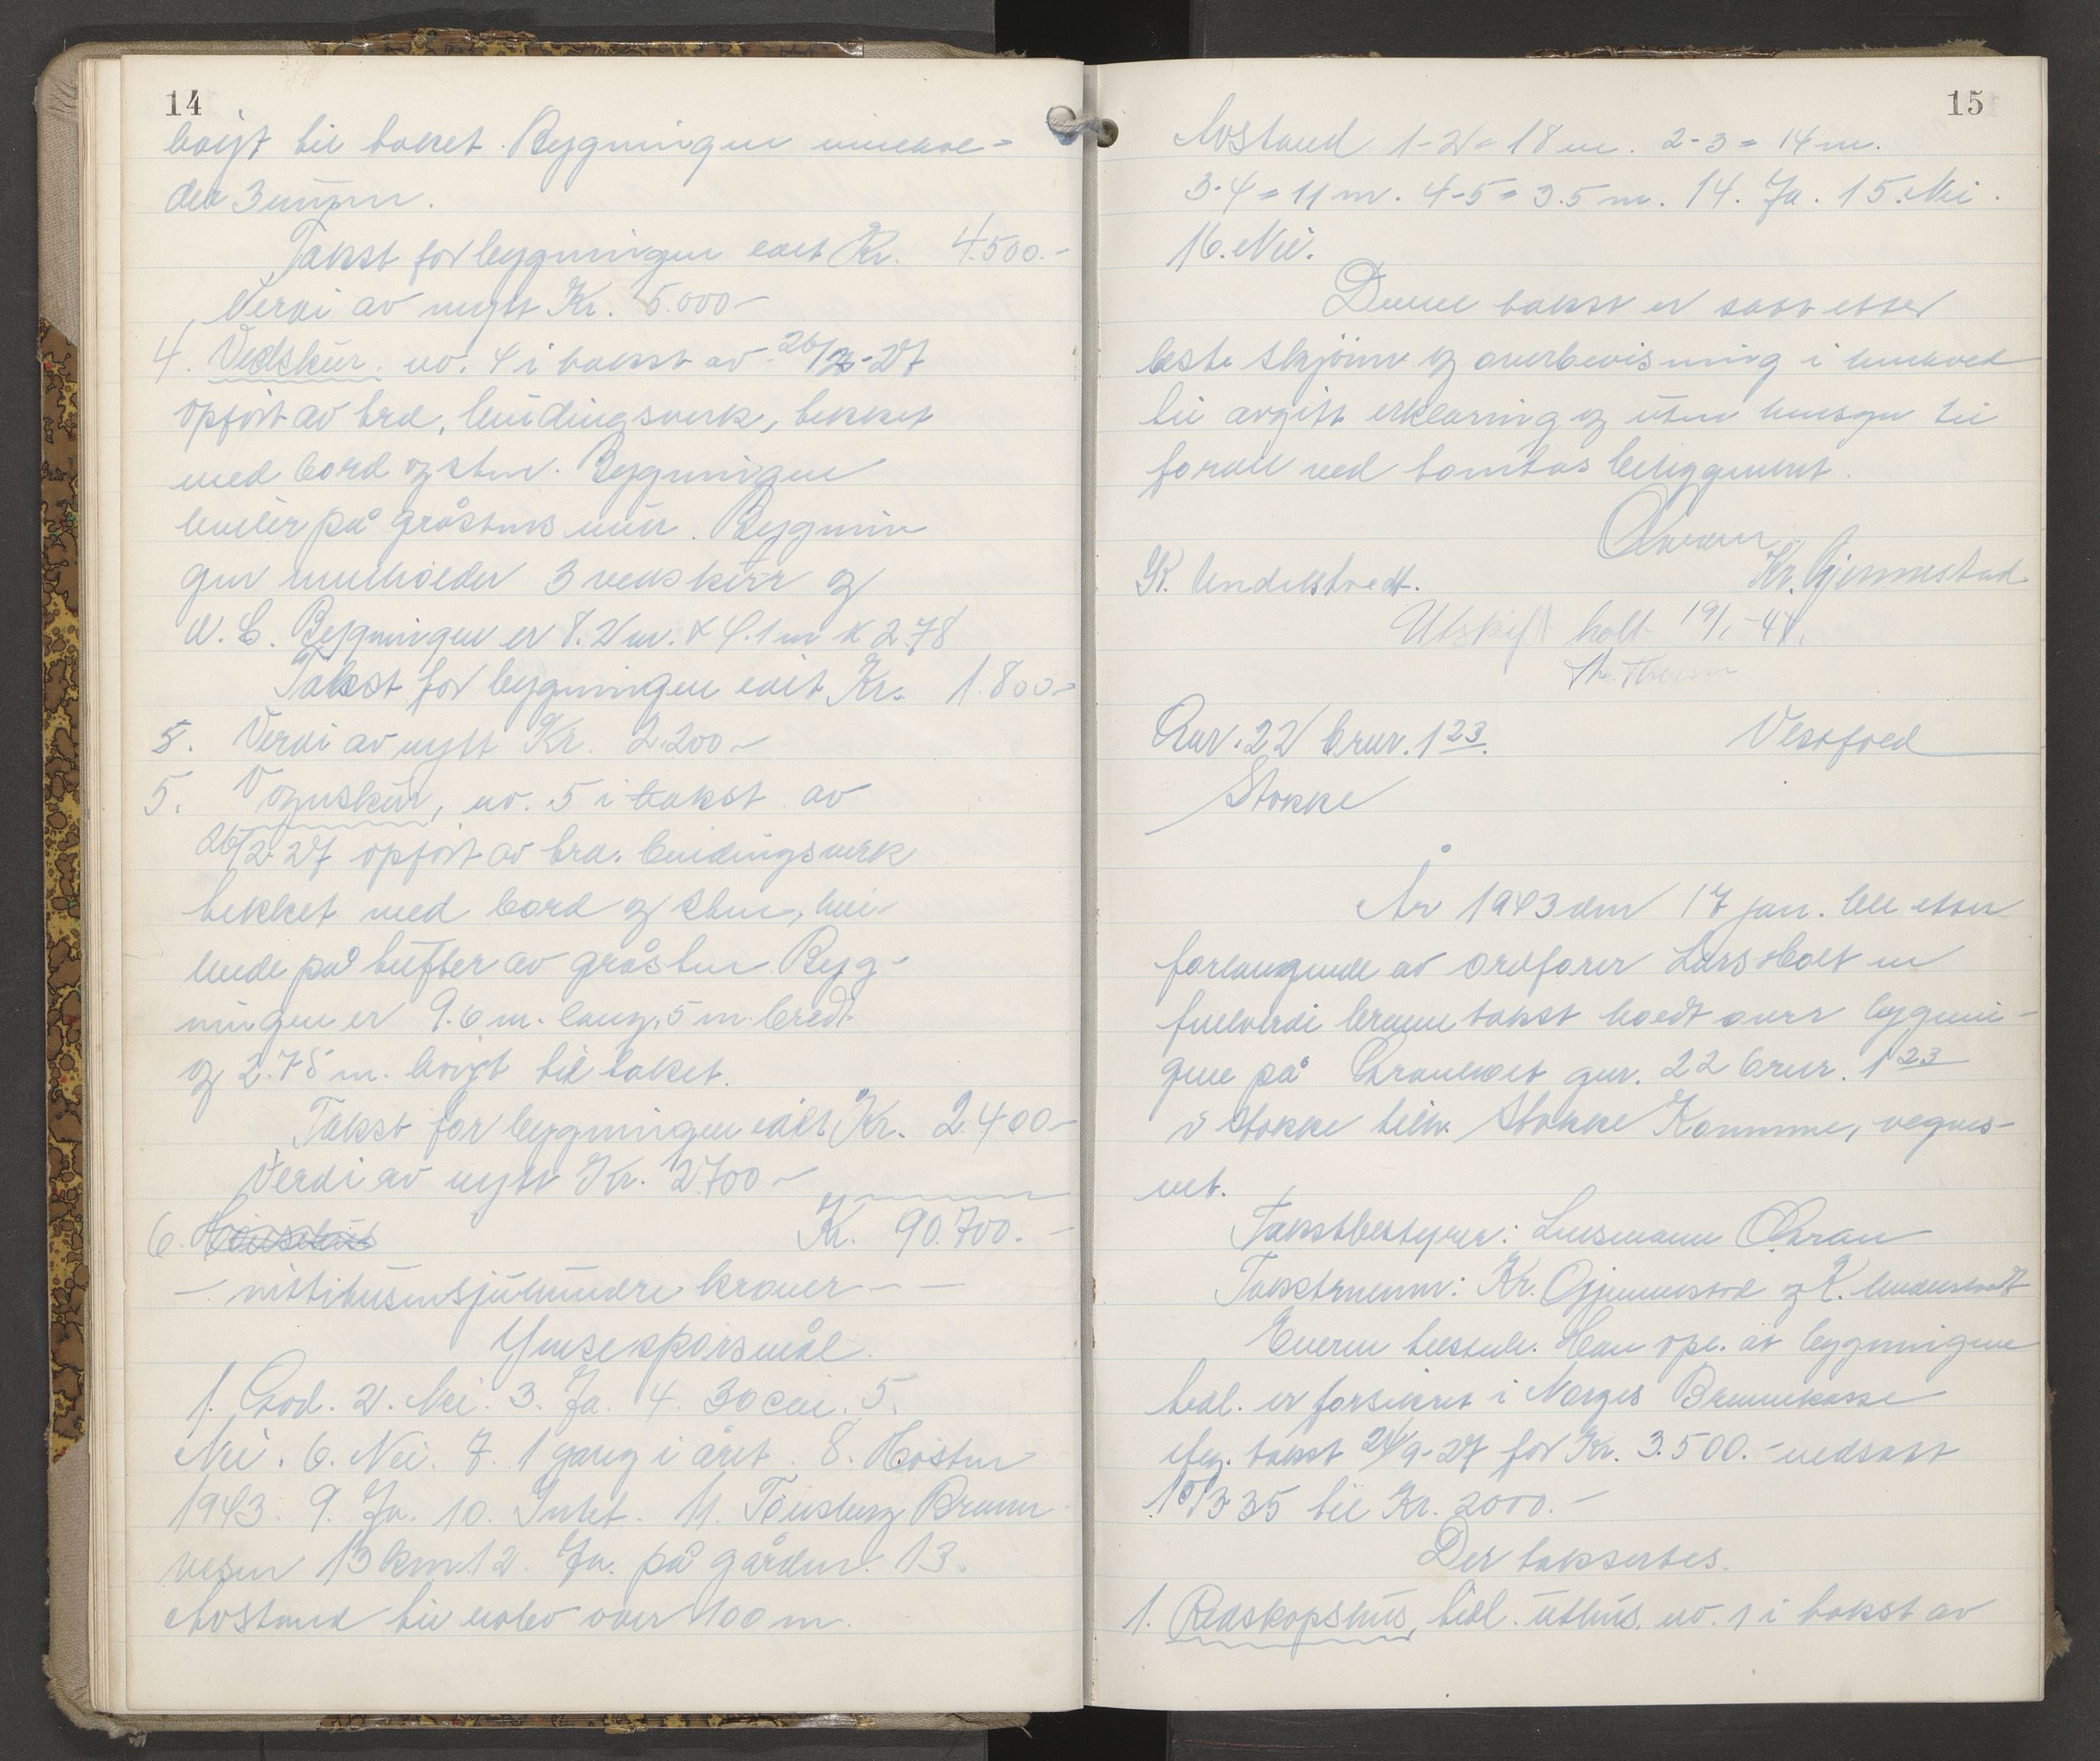 14
høigt til taket. Bygningen innehol-
der 3 uthus.
Takst for bygningen ialt Kr. 4.500.-
Verdi av nytt Kr. 5.000-
4. Vedskur. no. 4 i takst av 26/2-27
opført av tre, bindingsverk, tekket
med bord og sten. Bygningen
hviler på gråstens mur. Bygnin
gen inneholder 3 vedskur og
W.C. Bygningen er 8.2 m. x 4.1 m x 2.78
Takst for bygningen ialt Kr. 1.800-
5. Verdi av nytt Kr. 2.200-
5. Vognskur, no. 5 i takst av
26/2-27 opført av tre. bindingsverk
tekket med bord og sten, hvi-
lende på tufter av gråsten. Byg-
ningen er 9.6 m. lang, 5 m. bredt
og 2.78 m. høigt til taket.
Takst for bygningen ialt Kr. 2.400-
Verdi av nytt Kr. 2.700-
6. Kr. 90.700.-
- nittitusensjuhundre kroner - -
Ymse spørsmål.
1. God. 2. Nei. 3. Ja. 4. 30 cm. 5.
Nei. 6. Nei. 7. 1 gang i året. 8. Høsten
1943. 9. Ja. 10. Intet. 11. Tønsberg Brann
vesen 13 km. 12. Ja. på gården. 13.
Avstand til nabo over 100 m.
15
Avstand 1-2 = 18 m. 2-3 = 14 m.
3-4 = 11 m. 4-5 = 3.5 m. 14. Ja. 15. Nei.
16. Nei.
Denne takst er satt etter
beste skjønn og overbevisning i henhold
til avgitt erklæring og uten hensyn til
forhold ved tomtas beliggenhet.
Kr. Gjennestad
K. Undelstvedt.
Utskrift holt 19/1-44.
Gnr. 22 brnr. 1 23. Vestfold
Stokke
År 1943 den 17 jan. ble etter
forlangende av ordfører Lars Holt en
fullverdi branntakst holdt over bygnin-
gene på gnr. 22 brnr. 1 23
i Stokke tilh. Stokke Kommune, vegves-
net.
Takstbestyrer: Lensmann
Takstmenn: Kr. Gjennestad og K. Undelstvedt
Eieren tilstede. Han opl. at bygningene
tidl. er forsikret i Norges Brannkasse
efter takst 24/9-27 for Kr. 3.500.- nedsatt
10/3 35 til Kr. 2000.-
Der taksertes.
1. Redskapshus, tidl. uthus. no. 1 i takst av